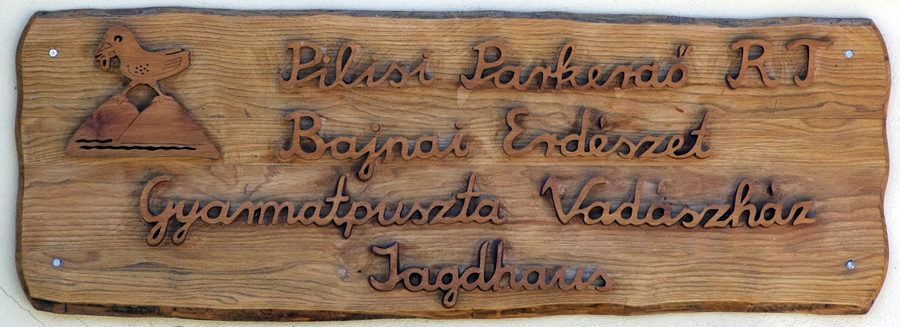 Pilisi Parkerdő RT
Bajnai Erdészet
Gyarmatpuszta Vadászház
Jagdhaus